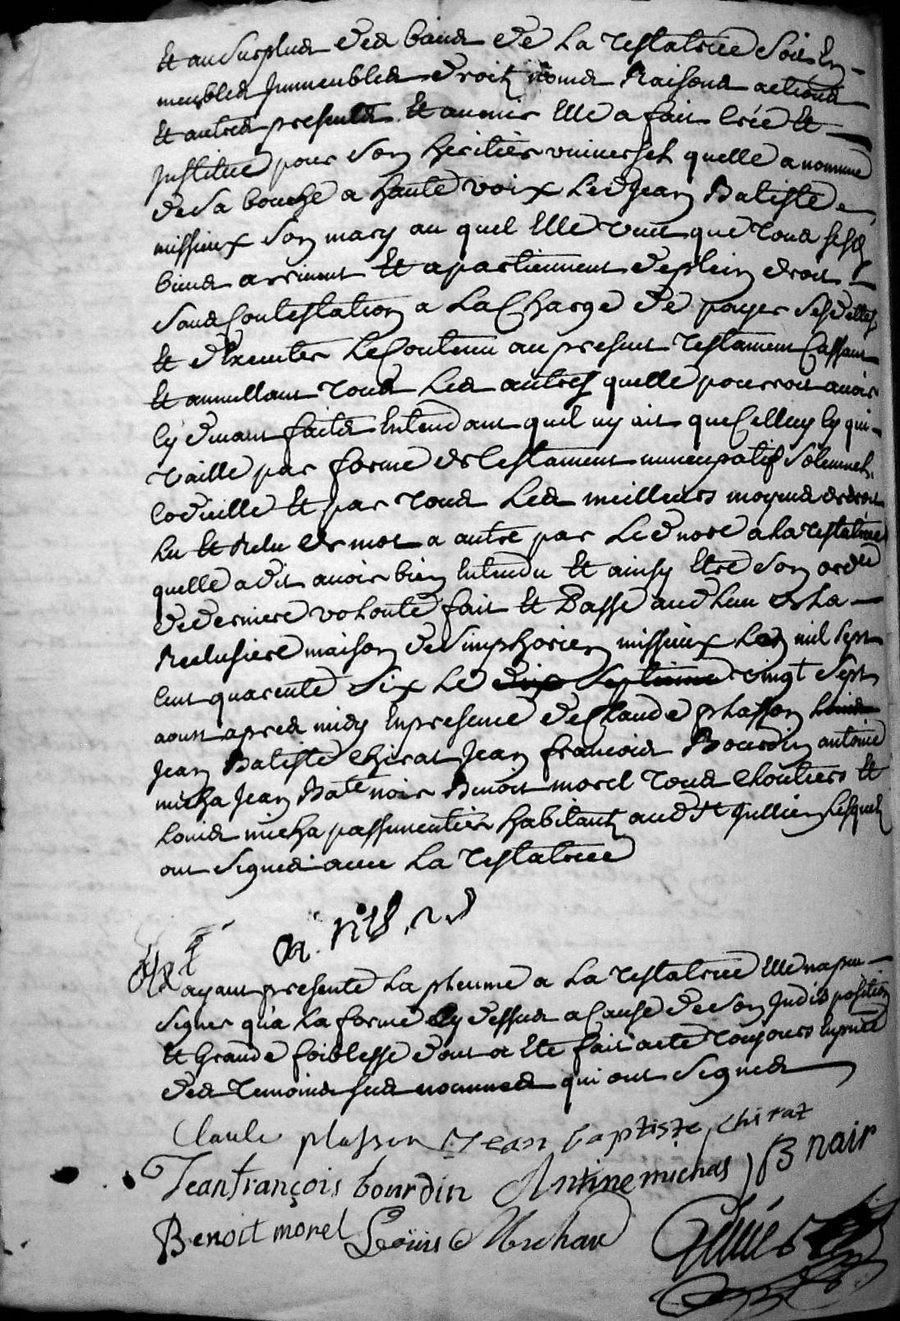 Et au surplus des biens de La testatrice soit En
meubles Immeubles droits noms Raisons actions
Et autres presents Et avenir Elle a fait Crée Et
Institué pour son heritier universel quelle a nommé
de Sa bouche a haute voix Led Jean Batiste
missieux son mary au quel Elle veut que tous sesd
biens arrivent Et apartiennent de plein droit Et
sans Contestation a La Charge de payer ses dettes
Et d'Executer Le Contenu au present testament Cassant
Et annullant tous Les autres quelle pourroit avoir
Cy devant faits Entendant quil ny ait que Celluy Cy qui
vaille par forme de testament nuncupatif solemnel
Codicille Et par tous Les meilleurs moyens de droit
Lu Et Relu de mot a autre par Le d nore a La testatrice
quelle a dit avoir bien Entendu Et ainsy Etre son ord.re
de derniere volonté fait Et Passé aud Lieu de La
maison de Simphorien missieux Lan mil sept
Cent quarente six Le dix septieme vingt sept
aoust apres midy En presence de Claude plasson Louis
Jean Batiste Chirat Jean francois Bourdin antoine
micha Jean Bate noir Benoit morel tous Cloutiers Et
Louis micha passementier habitants aud St Jullien Lesquels
ont signés avec La testatrice
ayant presenté La plume a La testatrice Elle na peu
signer qua La forme Cy dessus a Cause de son Indisposition
Et Grande foiblesse dont a Eté fait acte toujours En pnce
des temoins sus nommés qui ont signés
Claude plasson Jean baptiste chirat
Jean françois bourdin Antoine michas J B nair
Benoit morel Louis Michan